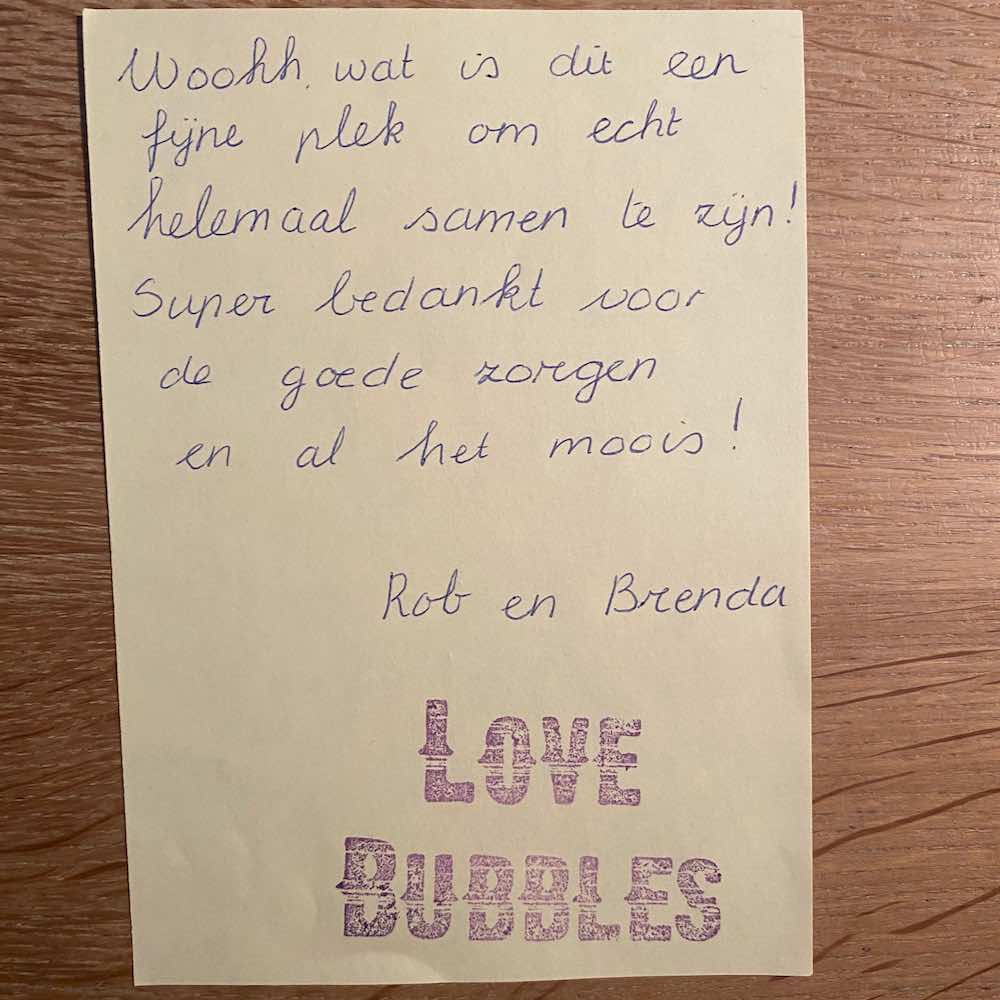 Woohh, wat is dit een
fijne plek om echt
helemaal samen te zijn!
Super bedankt voor
de goede zorgen
en al het moois!
Rob en Brenda
LOVE
BUBBLES